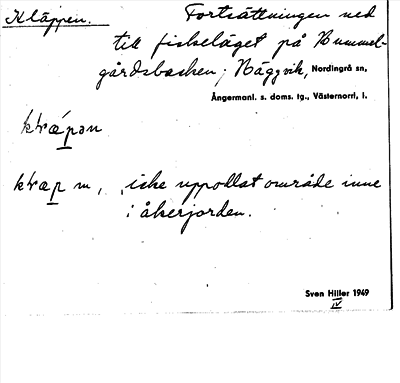 Kläppen. Fortsättningen ned
till fiskeläget på Bummel-
gårdsbacken; Häggvik, Nordingrå sn,
Ångermanl. s. doms. tg., Västernorrl. l.
m, icke uppodlat område inne
i åkerjorden.
Sven Hiller 1949
IV